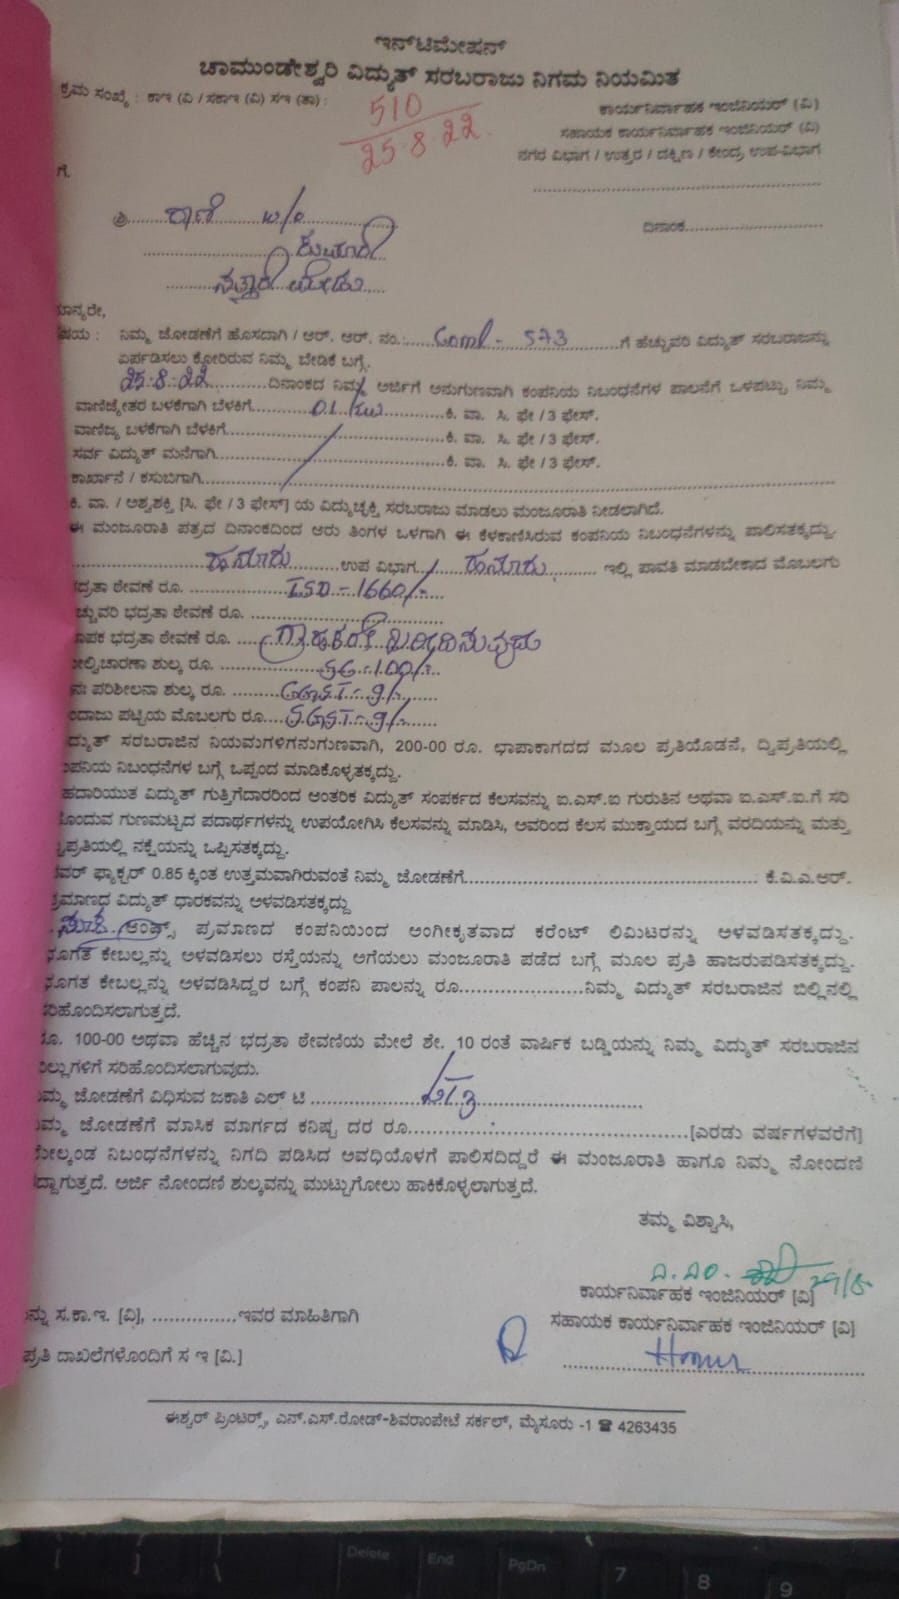 ಇನ್‌ಟಿಮೇಷನ್
ಚಾಮುಂಡೇಶ್ವರಿ ವಿದ್ಯುತ್ ಸರಬರಾಜು ನಿಗಮ ನಿಯಮಿತ
ಕ್ರಮ ಸಂಖ್ಯೆ : ಕಾಇ (ವಿ / ಸಕಾಇ (ವಿ) ಸಇ (ತಾ) :
510
25.8.22
ಕಾರ್ಯನಿರ್ವಾಹಕ ಇಂಜಿನಿಯರ್ (ವಿ)
ಸಹಾಯಕ ಕಾರ್ಯನಿರ್ವಾಹಕ ಇಂಜಿನಿಯರ್ (ವಿ)
ನಗರ ವಿಭಾಗ / ಉತ್ತರ / ದಕ್ಷಿಣ / ಕೇಂದ್ರ ಉಪ-ವಿಭಾಗ
ಗೆ.
ಶ್ರೀ ರಾಣಿ w/o
ದಿನಾಂಕ
ಮಾನ್ಯರೇ,
ವಿಷಯ : ನಿಮ್ಮ ಜೋಡಣೆಗೆ ಹೊಸದಾಗಿ / ಆರ್. ಆರ್. ನಂ.: Coml - 573 ಗೆ ಹೆಚ್ಚುವರಿ ವಿದ್ಯುತ್ ಸರಬರಾಜನ್ನು
ಏರ್ಪಡಿಸಲು ಕೋರಿರುವ ನಿಮ್ಮ ಬೇಡಿಕೆ ಬಗ್ಗೆ.
25.8.22 ದಿನಾಂಕದ ನಿಮ್ಮ ಅರ್ಜಿಗೆ ಅನುಗುಣವಾಗಿ ಕಂಪನಿಯ ನಿಬಂಧನೆಗಳ ಪಾಲನೆಗೆ ಒಳಪಟ್ಟು ನಿಮ್ಮ
ವಾಣಿಜ್ಯೇತರ ಬಳಕೆಗಾಗಿ ಬೆಳಕಿಗೆ 01 kw ಕಿ. ವಾ. ಸಿ. ಫೇ / 3 ಫೇಸ್.
ವಾಣಿಜ್ಯ ಬಳಕೆಗಾಗಿ ಬೆಳಕಿಗೆ ಕಿ. ವಾ. ಸಿ. ಫೇ / 3 ಫೇಸ್.
ಸರ್ವ ವಿದ್ಯುತ್ ಮನೆಗಾಗಿ ಕಿ. ವಾ. ಸಿ. ಫೇ / 3 ಫೇಸ್.
ಕಾರ್ಖಾನೆ / ಕಸುಬಿಗಾಗಿ
ಕಿ. ವಾ. / ಅಶ್ವಶಕ್ತಿ [ಸಿ. ಫೇ / 3 ಫೇಸ್] ಯ ವಿದ್ಯುಚ್ಛಕ್ತಿ ಸರಬರಾಜು ಮಾಡಲು ಮಂಜೂರಾತಿ ನೀಡಲಾಗಿದೆ.
ಈ ಮಂಜೂರಾತಿ ಪತ್ರದ ದಿನಾಂಕದಿಂದ ಆರು ತಿಂಗಳ ಒಳಗಾಗಿ ಈ ಕೆಳಕಾಣಿಸಿರುವ ಕಂಪನಿಯ ನಿಬಂಧನೆಗಳನ್ನು ಪಾಲಿಸತಕ್ಕದ್ದು.
ಹನೂರು ಉಪ ವಿಭಾಗ ಹನೂರು ಇಲ್ಲಿ ಪಾವತಿ ಮಾಡಬೇಕಾದ ಮೊಬಲಗು
ಭದ್ರತಾ ಠೇವಣಿ ರೂ. ISD - 1660/-
ಹೆಚ್ಚುವರಿ ಭದ್ರತಾ ಠೇವಣೆ ರೂ.
ಮಾಪಕ ಭದ್ರತಾ ಠೇವಣೆ ರೂ. ಗ್ರಾಹಕರೇ ಖರೀದಿಸುವುದು
ಮೇಲ್ವಿಚಾರಣಾ ಶುಲ್ಕ ರೂ. SC - 100/-
ಪುನಃ ಪರಿಶೀಲನಾ ಶುಲ್ಕ ರೂ. CGST - 9/-
ಅಂದಾಜು ಪಟ್ಟಿಯ ಮೊಬಲಗು ರೂ. SGST - 9/-
ವಿದ್ಯುತ್ ಸರಬರಾಜಿನ ನಿಯಮಗಳಿಗನುಗುಣವಾಗಿ, 200-00 ರೂ. ಛಾಪಾಕಾಗದದ ಮೂಲ ಪ್ರತಿಯೊಡನೆ, ದ್ವಿಪ್ರತಿಯಲ್ಲಿ
ಕಂಪನಿಯ ನಿಬಂಧನೆಗಳ ಬಗ್ಗೆ ಒಪ್ಪಂದ ಮಾಡಿಕೊಳ್ಳತಕ್ಕದ್ದು.
ರಹದಾರಿಯುತ ವಿದ್ಯುತ್ ಗುತ್ತಿಗೆದಾರರಿಂದ ಆಂತರಿಕ ವಿದ್ಯುತ್ ಸಂಪರ್ಕದ ಕೆಲಸವನ್ನು ಐ.ಎಸ್.ಐ ಗುರುತಿನ ಅಥವಾ ಐ.ಎಸ್.ಐ.ಗೆ ಸರಿ
ಹೊಂದುವ ಗುಣಮಟ್ಟದ ಪದಾರ್ಥಗಳನ್ನು ಉಪಯೋಗಿಸಿ ಕೆಲಸವನ್ನು ಮಾಡಿಸಿ, ಅವರಿಂದ ಕೆಲಸ ಮುಕ್ತಾಯದ ಬಗ್ಗೆ ವರದಿಯನ್ನು ಮತ್ತು
ದ್ವಿಪ್ರತಿಯಲ್ಲಿ ನಕ್ಷೆಯನ್ನು ಒಪ್ಪಿಸತಕ್ಕದ್ದು.
ಪವರ್ ಫ್ಯಾಕ್ಟರ್ 0.85 ಕ್ಕಿಂತ ಉತ್ತಮವಾಗಿರುವಂತೆ ನಿಮ್ಮ ಜೋಡಣೆಗೆ ಕೆ.ವಿ.ಎ.ಆರ್.
ಪ್ರಮಾಣದ ವಿದ್ಯುತ್ ಧಾರಕವನ್ನು ಅಳವಡಿಸತಕ್ಕದ್ದು
ಆಂಪ್ಸ್ ಪ್ರಮಾಣದ ಕಂಪನಿಯಿಂದ ಅಂಗೀಕೃತವಾದ ಕರೆಂಟ್ ಲಿಮಿಟರನ್ನು ಅಳವಡಿಸತಕ್ಕದ್ದು.
ಭೂಗತ ಕೇಬಲ್ಲನ್ನು ಅಳವಡಿಸಲು ರಸ್ತೆಯನ್ನು ಅಗೆಯಲು ಮಂಜೂರಾತಿ ಪಡೆದ ಬಗ್ಗೆ ಮೂಲ ಪ್ರತಿ ಹಾಜರುಪಡಿಸತಕ್ಕದ್ದು.
ಭೂಗತ ಕೇಬಲ್ಲನ್ನು ಅಳವಡಿಸಿದ್ದರ ಬಗ್ಗೆ ಕಂಪನಿ ಪಾಲನ್ನು ರೂ. ನಿಮ್ಮ ವಿದ್ಯುತ್ ಸರಬರಾಜಿನ ಬಿಲ್ಲಿನಲ್ಲಿ
ಸರಿಹೊಂದಿಸಲಾಗುತ್ತದೆ.
ರೂ. 100-00 ಅಥವಾ ಹೆಚ್ಚಿನ ಭದ್ರತಾ ಠೇವಣಿಯ ಮೇಲೆ ಶೇ. 10 ರಂತೆ ವಾರ್ಷಿಕ ಬಡ್ಡಿಯನ್ನು ನಿಮ್ಮ ವಿದ್ಯುತ್ ಸರಬರಾಜಿನ
ಬಿಲ್ಲುಗಳಿಗೆ ಸರಿಹೊಂದಿಸಲಾಗುವುದು.
ನಿಮ್ಮ ಜೋಡಣೆಗೆ ವಿಧಿಸುವ ಜಕಾತಿ ಎಲ್ ಟಿ LT 3
ನಿಮ್ಮ ಜೋಡಣೆಗೆ ಮಾಸಿಕ ಮಾರ್ಗದ ಕನಿಷ್ಟ ದರ ರೂ. [ಎರಡು ವರ್ಷಗಳವರೆಗೆ]
ಮೇಲ್ಕಂಡ ನಿಬಂಧನೆಗಳನ್ನು ನಿಗದಿ ಪಡಿಸಿದ ಅವಧಿಯೊಳಗೆ ಪಾಲಿಸದಿದ್ದರೆ ಈ ಮಂಜೂರಾತಿ ಹಾಗೂ ನಿಮ್ಮ ನೋಂದಣಿ
ರದ್ದಾಗುತ್ತದೆ. ಅರ್ಜಿ ನೋಂದಣಿ ಶುಲ್ಕವನ್ನು ಮುಟ್ಟುಗೋಲು ಹಾಕಿಕೊಳ್ಳಲಾಗುತ್ತದೆ.
ತಮ್ಮ ವಿಶ್ವಾಸಿ,
29/8
ಕಾರ್ಯನಿರ್ವಾಹಕ ಇಂಜಿನಿಯರ್ [ವಿ]
ಸ.ಕಾ.ಇ. [ವಿ], ಇವರ ಮಾಹಿತಿಗಾಗಿ
ಸಹಾಯಕ ಕಾರ್ಯನಿರ್ವಾಹಕ ಇಂಜಿನಿಯರ್ [ವಿ]
ಪ್ರತಿ ದಾಖಲೆಗಳೊಂದಿಗೆ ಸ ಇ [ವಿ.]
Hanur
ಈಶ್ವರ್ ಪ್ರಿಂಟರ್ಸ್, ಎನ್.ಎಸ್.ರೋಡ್-ಶಿವರಾಂಪೇಟೆ ಸರ್ಕಲ್, ಮೈಸೂರು -1 ☎ 4263435
Delete End PgDn 7 8 9